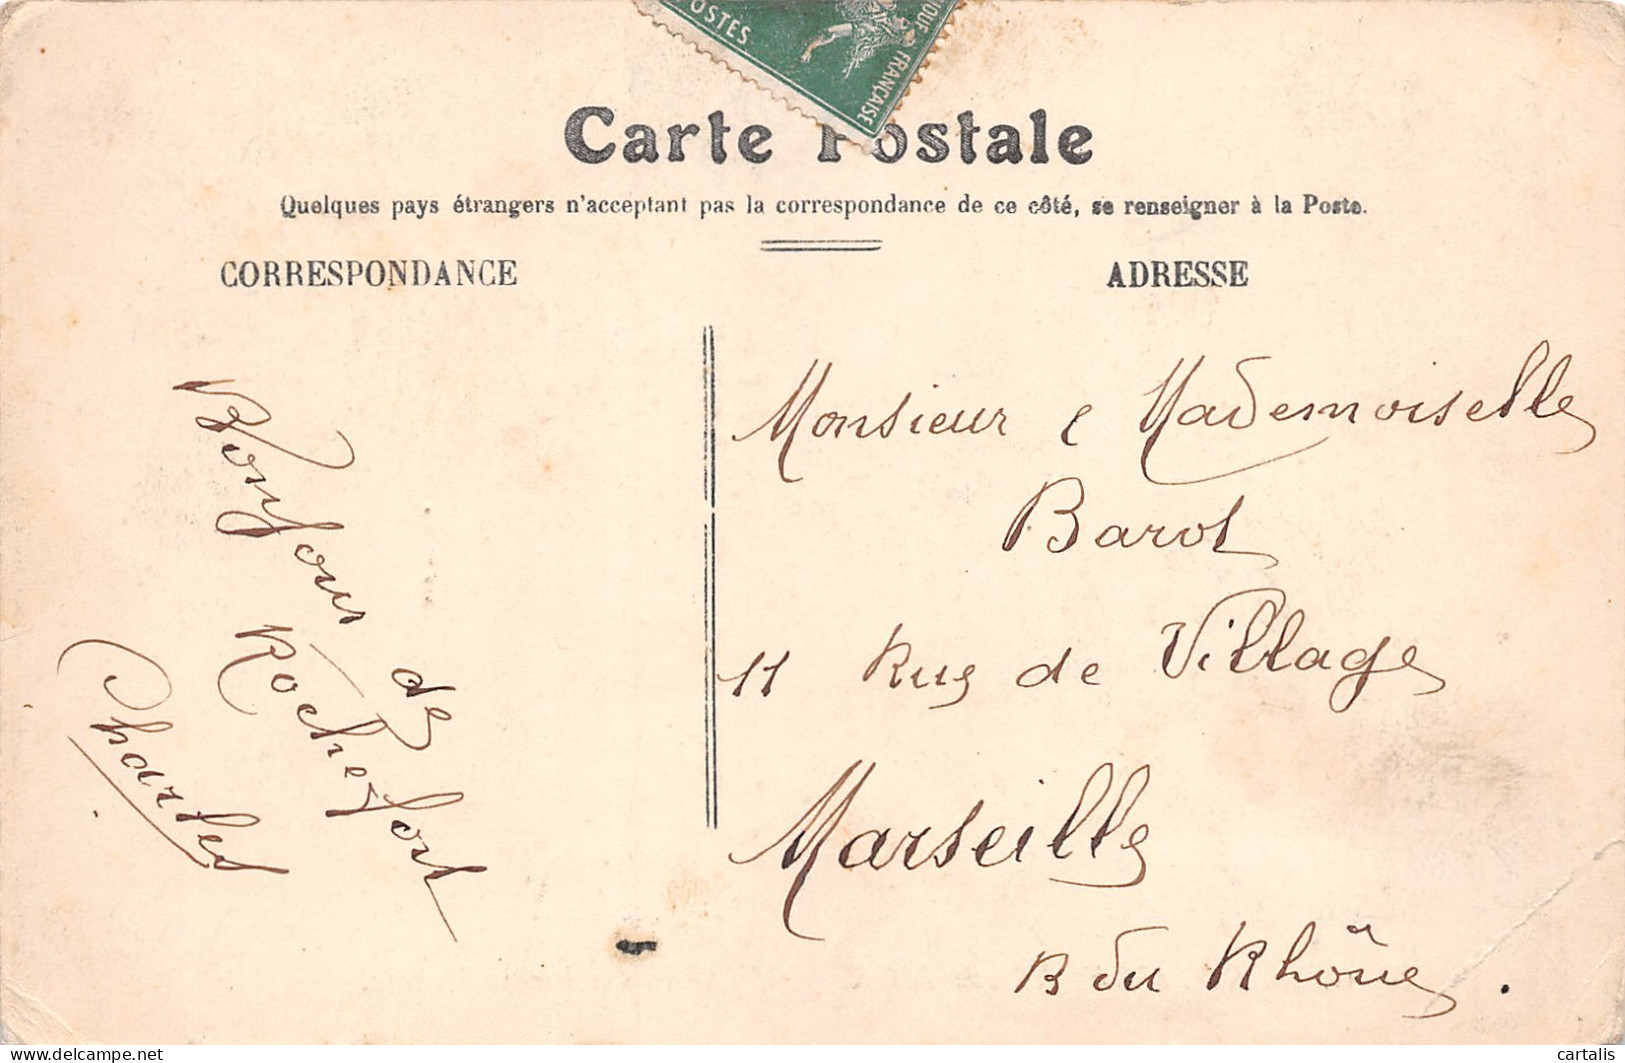 POSTES
FRANÇAISE
Carte Postale
Quelques pays étrangers n'acceptant pas la correspondance de ce côté, se renseigner à la Poste.
CORRESPONDANCE
ADRESSE
Bonjour
de
Rochefort
Charles
Monsieur & Mademoiselle
Barot
11 Rue de Village
Marseille
B du Rhône.
cartalis